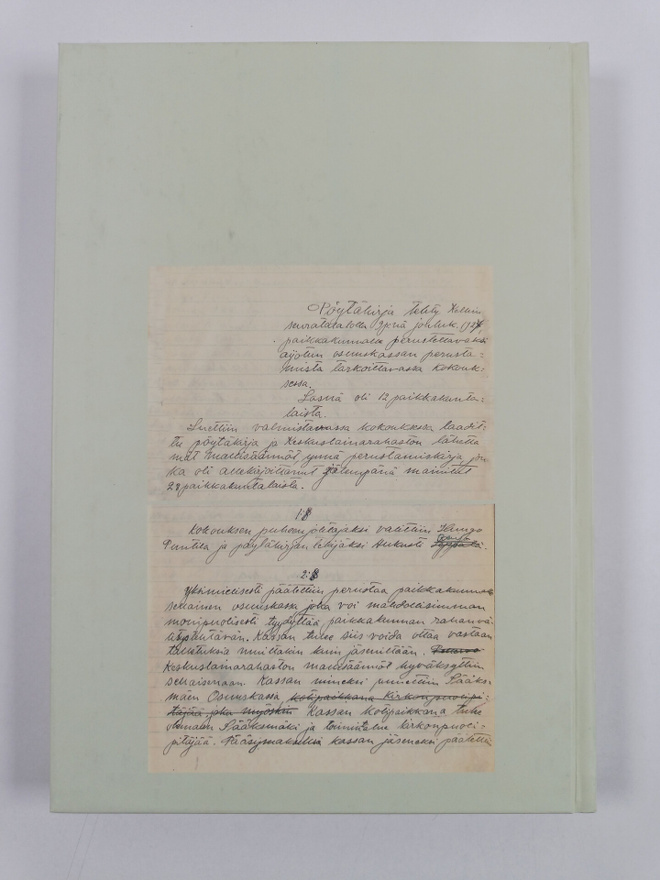 Pöytäkirja tehty Kellin
seuratalolla 9pnä jouluk. 1927,
paikkakunnalle perustettavaksi
aijotun osuuskassan perusta-
mista tarkoittavassa kokouk-
sessa.
Läsnä oli 12 paikkakunta-
laista.
Luettiin valmistavassa kokouksessa laadit-
tu pöytäkirja ja Keskuslainarahaston lähettä-
mät mallisäännöt ynnä perustamiskirja jon-
ka oli allekirjoittanut jälempänä mainitut
28 paikkakuntalaista.
1:§
Kokouksen puheenjohtajaksi valittiin
Puntila ja pöytäkirjan tekijäksi Aukusti
2:§
Yksimielisesti päätettiin perustaa paikkakunnalle
sellainen osuuskassa joka voi mahdollisimman
monipuolisesti tyydyttää paikkakunnan rahanvä-
litystehtävän. Kassan tulee siis voida ottaa vastaan
talletuksia muiltakin kuin jäsiniltään.
Keskuslainarahaston mallisäännöt hyväksyttiin
sellaisinaan. Kassan nimeksi pantiin Sääks-
mäen Osuuskassa, kotipaikkana kirkonpuolipi-
täjää joka myöskin Kassan kotipaikkana tulee
olemaan Sääksmäki ja toimialue kirkonpuoli-
pitäjää. Pääsymaksuksi kassan jäseneksi päätettiin